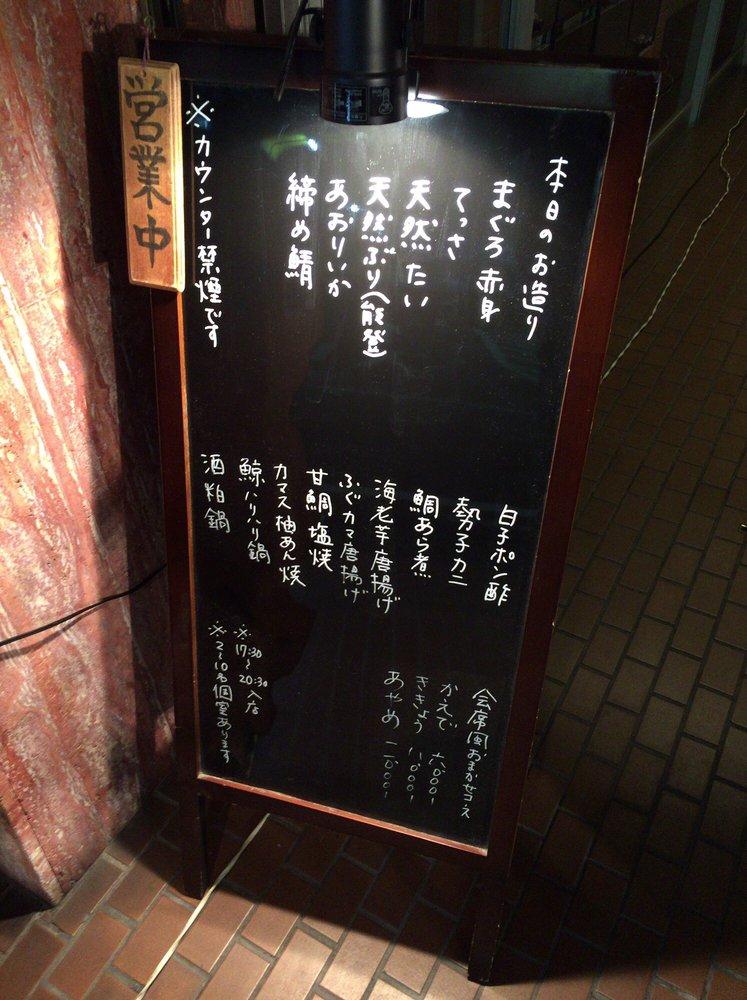 営業中
本日のお造り
まぐろ赤身
てっさ
天然たい
天然ぶり(能登)
あおりいか
締め鯖
※カウンター禁煙です
白子ポン酢
勢子カニ
鯛あら煮
海老芋唐揚げ
ふぐカマ唐揚げ
甘鯛塩焼
カマス柚あん焼
鯨ハリハリ鍋
酒粕鍋
会席風おまかせコース
かえで 六〇〇〇
ききょう 八〇〇〇
あやめ 一〇〇〇〇
※17:30~20:30入店
※2~10名個室あります